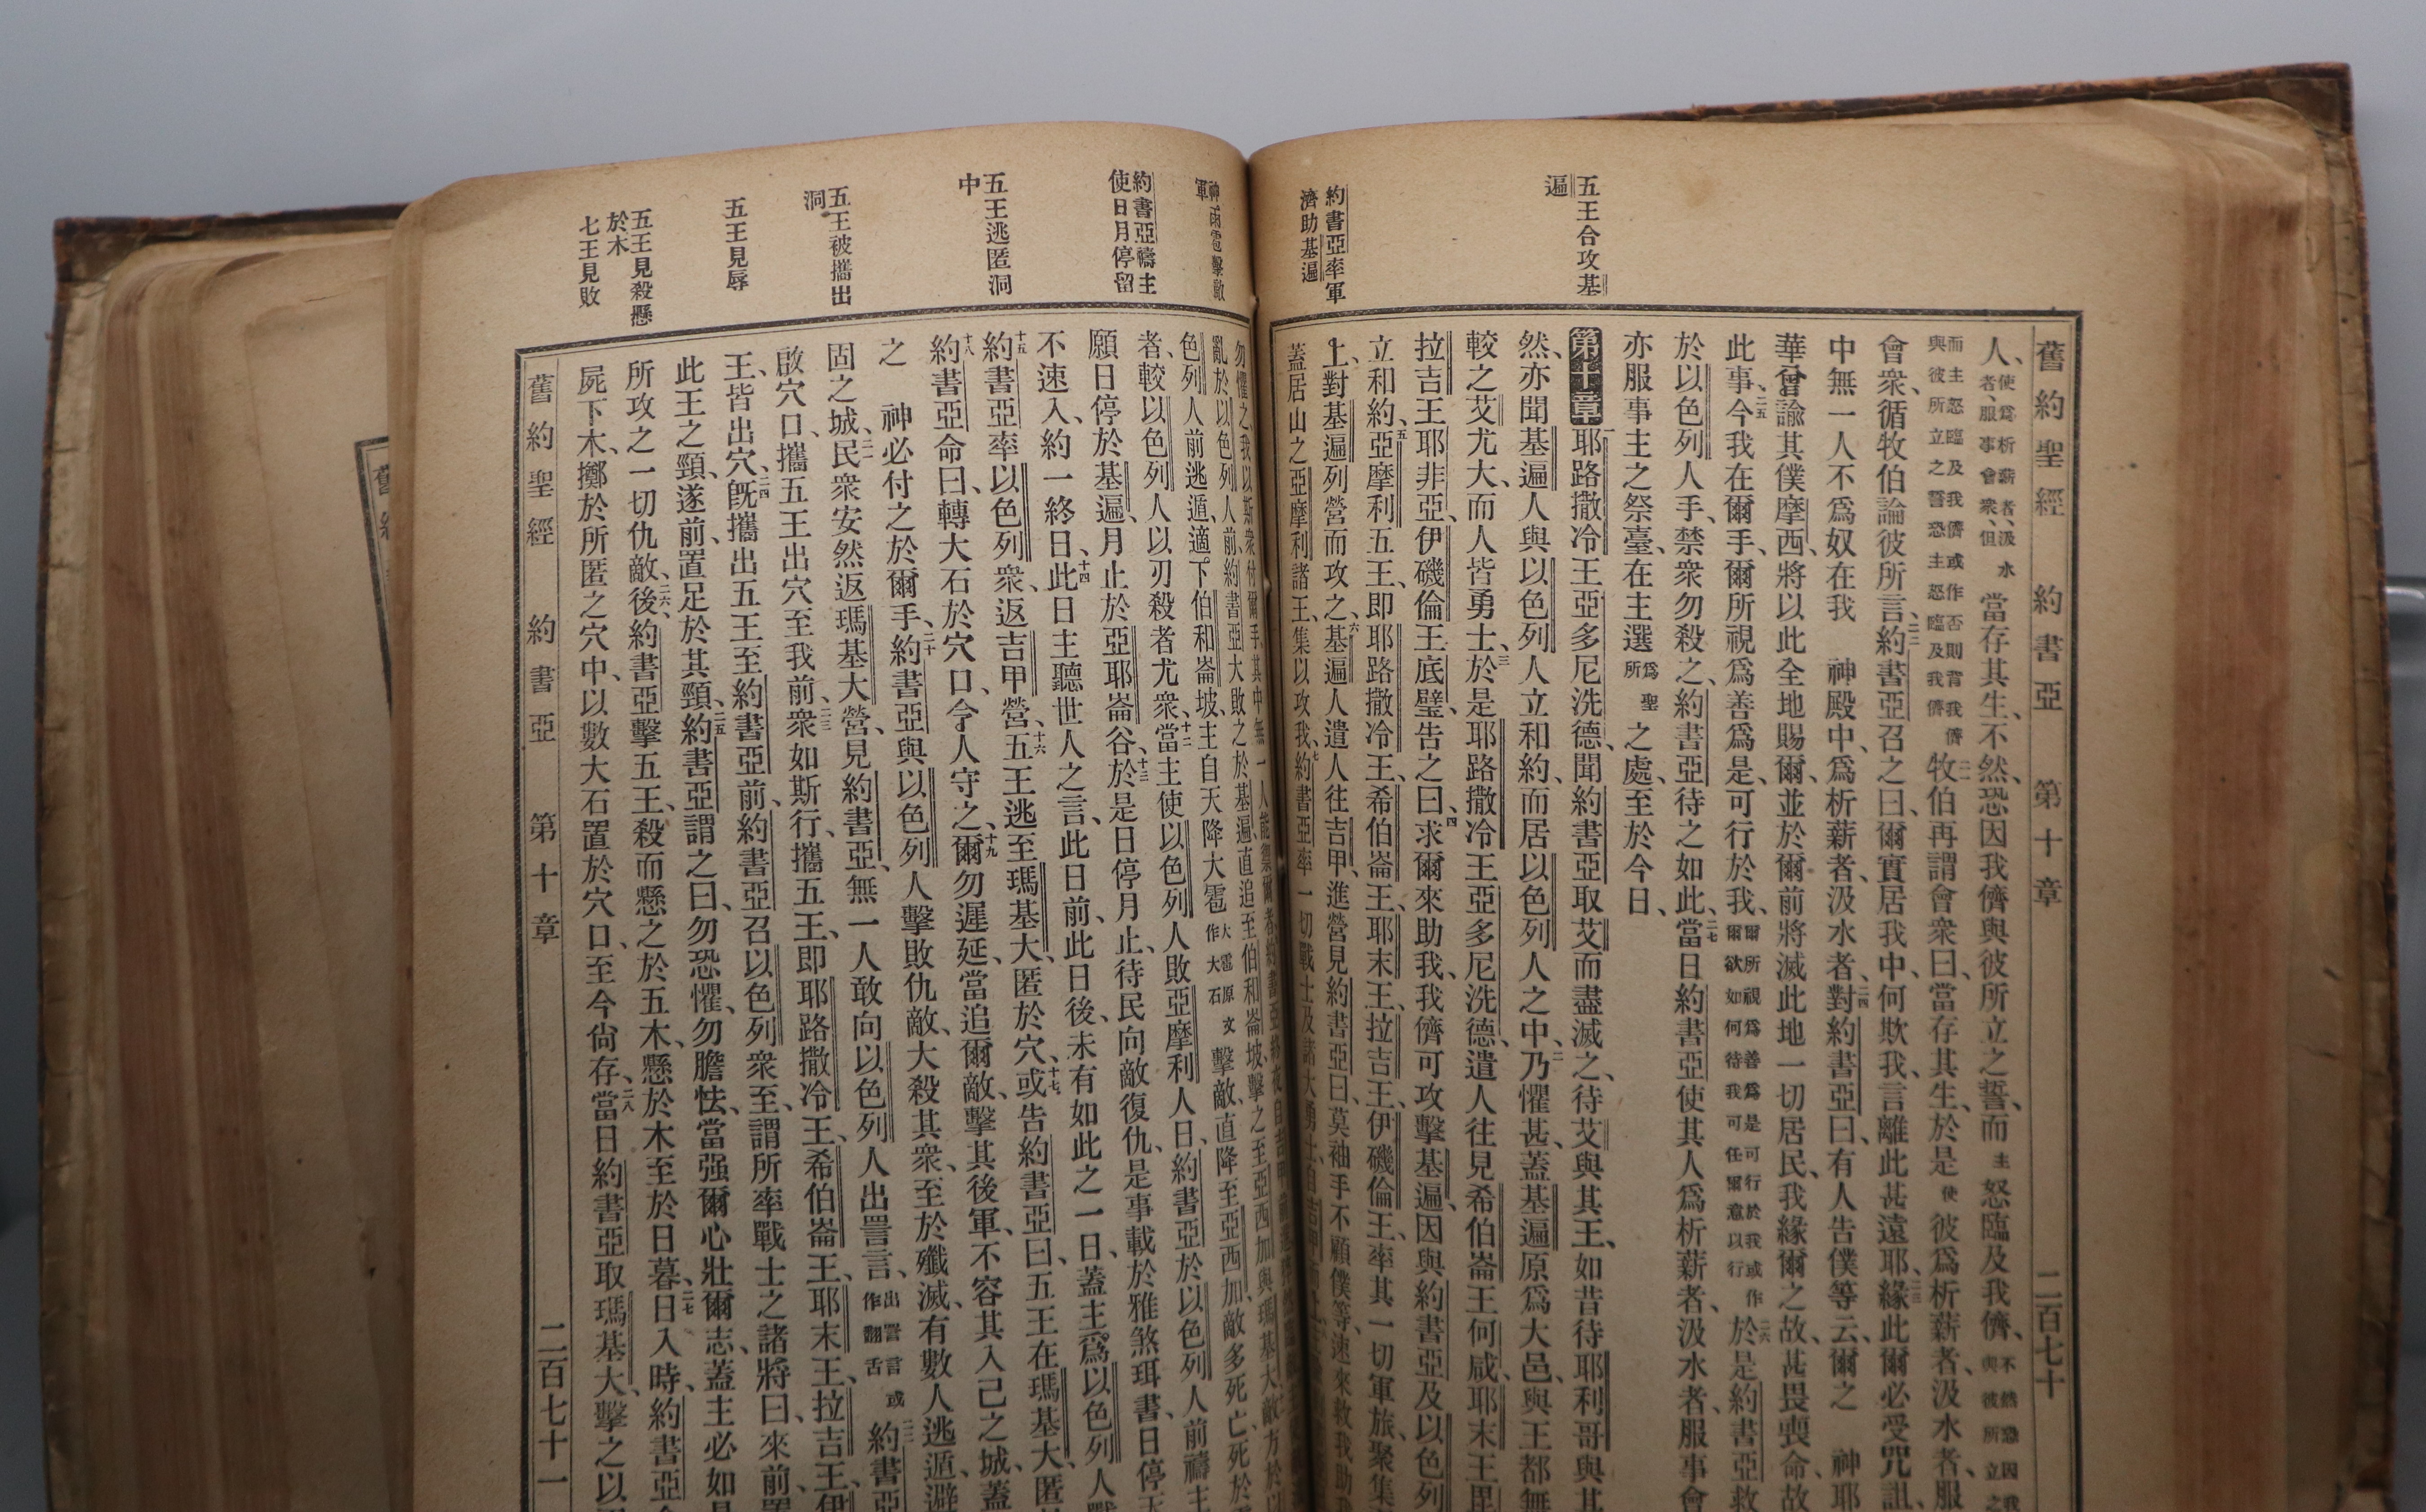 五王合攻基
遍
約書亞率軍
濟助基遍
舊約聖經 約書亞 第十章 二百七十
人、使爲析薪者、汲水者、服事會衆、但當存其生、不然、恐因我儕與彼所立之誓、而主怒臨及我儕、不然恐因我
而主怒臨及我儕或作否則背我儕與彼所立之誓恐主怒臨及我儕二一牧伯再謂會衆曰、當存其生、於是使彼爲析薪者、汲水者、服
會衆、循牧伯論彼所言、二二約書亞召之曰、爾實居我中、何欺我、言離此甚遠耶、二三緣此爾必受咒詛、
中無一人不爲奴在我 神殿中、爲析薪者、汲水者、二四對約書亞曰、有人告僕等云、爾之 神耶
華曾諭其僕摩西、將以此全地賜爾、並於爾前將滅此地一切居民、我緣爾之故、甚畏喪命、故
此事、二五今我在爾手、爾所視爲善爲是、可行於我、爾所視爲善爲是可行於我或作爾欲如何待我可任爾意以行二六於是約書亞救
於以色列人手、禁衆勿殺之、約書亞待之如此、二七當日約書亞使其人爲析薪者、汲水者、服事會
亦服事主之祭臺、在主選爲聖所之處、至於今日、
第十章 一耶路撒冷王亞多尼洗德、聞約書亞取艾而盡滅之、待艾與其王、如昔待耶利哥與其
然、亦聞基遍人與以色列人立和約、而居以色列人之中、二乃懼甚、蓋基遍原爲大邑、與王都無
較之艾尤大、而人皆勇士、三於是耶路撒冷王亞多尼洗德、遣人往見希伯崙王何咸、耶末王毘
拉吉王耶非亞、伊磯倫王底璧、告之曰、四求爾來助我、我儕可攻擊基遍、因與約書亞及以色列
立和約、五亞摩利五王、即耶路撒冷王、希伯崙王、耶末王、拉吉王、伊磯倫王、率其一切軍旅、聚集
上、對基遍列營而攻之、六基遍人遣人往吉甲、進營見約書亞曰、莫袖手不顧僕等、速來救我助
蓋居山之亞摩利諸王、集以攻我、七約書亞率一切戰士及諸大勇士、自吉甲
神雨雹擊敵
軍
約書亞禱主
使日月停留
五王逃匿洞
中
五王被攜出
洞
五王見辱
五王見殺懸
於木
七王見敗
勿懼之、我以斯衆付爾手、其中無一人能禦爾者、約書亞終夜自吉甲
亂於以色列人前、約書亞大敗之於基遍、直追至伯和崙坡、擊之至亞西加與瑪基大、敵方於以
色列人前逃遁、適下伯和崙坡、主自天降大雹大雹原文作大石擊敵、直降至亞西加、敵多死亡、死於
者、較以色列人以刃殺者尤衆、十二當主使以色列人敗亞摩利人日、約書亞於以色列人前禱主
願日停於基遍、月止於亞耶崙谷、十三於是日停月止、待民向敵復仇、是事載於雅煞珥書、日停天
不速入、約一終日、十四此日主聽世人之言、此日前、此日後、未有如此之一日、蓋主爲以色列人戰
十五約書亞率以色列衆、返吉甲營、十六五王逃至瑪基大、匿於穴、十七或告約書亞曰、五王在瑪基大、匿
十八約書亞命曰、轉大石於穴口、令人守之、十九爾勿遲延、當追爾敵、擊其後軍、不容其入己之城、蓋
之 神必付之於爾手、二十約書亞與以色列人擊敗仇敵、大殺其衆、至於殲滅、有數人逃遁、避
固之城、二一民衆安然返瑪基大營、見約書亞、無一人敢向以色列人出詈言、出詈言或作翻舌二二約書亞
啟穴口、攜五王出穴至我前、二三衆如斯行、攜五王、即耶路撒冷王、希伯崙王、耶末王、拉吉王、伊
王、皆出穴、二四旣攜出五王至約書亞前、約書亞召以色列衆至、謂所率戰士之諸將曰、來前、置
此王之頸、遂前、置足於其頸、二五約書亞謂之曰、勿恐懼、勿膽怯、當强爾心、壯爾志、蓋主必如是
所攻之一切仇敵、二六後、約書亞擊五王、殺而懸之於五木、懸於木至於日暮、二七日入時、約書亞
屍下木、擲於所匿之穴中、以數大石置於穴口、至今尙存、二八當日約書亞取瑪基大、擊之以
舊約聖經 約書亞 第十章 二百七十一
舊